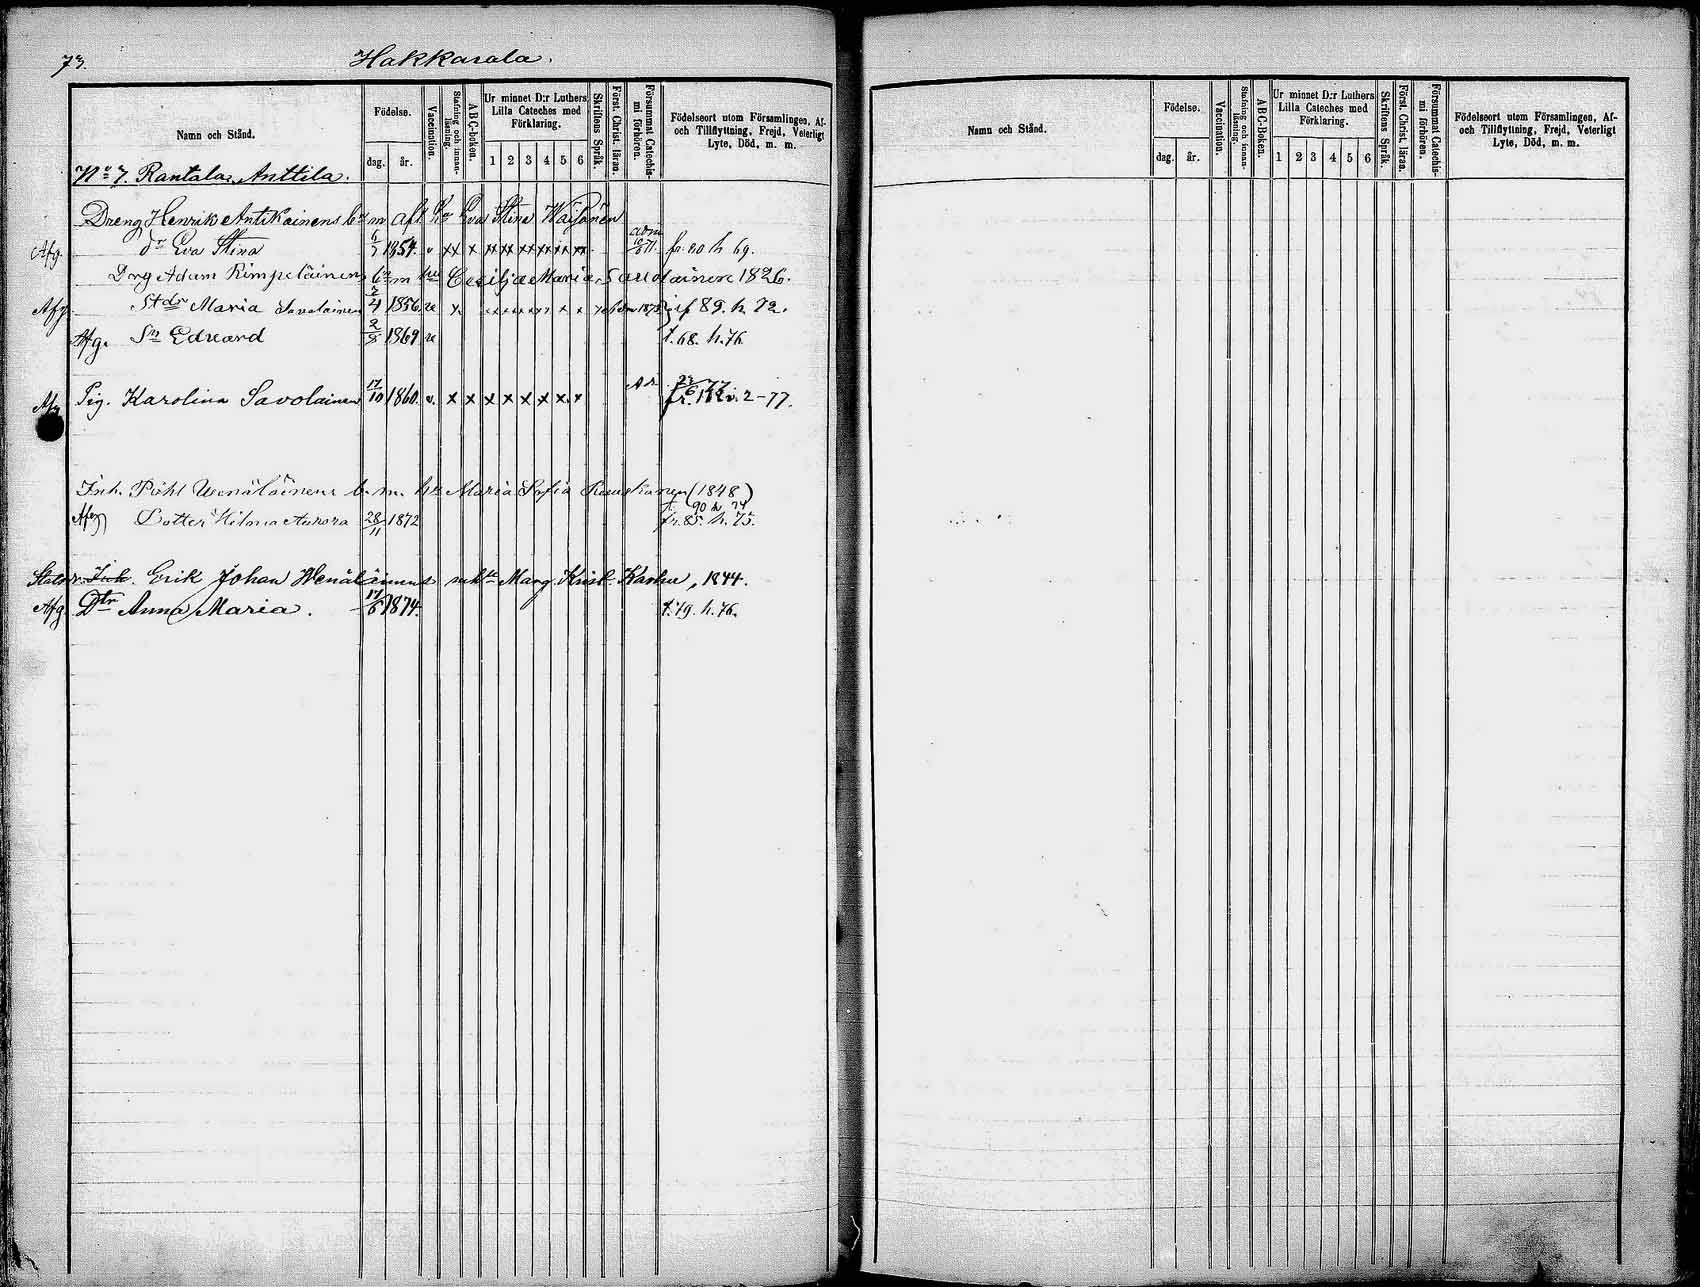 73. Hakkarala.
Namn och Stånd. Födelse. dag. år. Vaccination. Stafning och innanläsning. A B C-boken. Ur minnet D:r Luthers Lilla Cateches med Förklaring. 1 2 3 4 5 6 Skriftens Språk. Först. Christ. läran. Försummat Catechismi förhören. Födelseort utom Församlingen, Af- och Tillflyttning, Frejd, Veterligt Lyte, Död, m. m.
No 7. Rantala, Anttila.
Dreng Henrik Antikainens
Afg. dr Eva Stina 6/7 1854. v xx x xx xx xx xx xx xx adm 71. fr. 80 h 69.
Drg Adam Rimpeläinen Cecilja Maria Savolainen 1826.
Afg. Stdr Maria Savolainen 7/4 1856 1873 if 89. h. 72.
Afg. Sn Edvard 2/8 1869 t. 68. h. 76
Afg Pig. Karolina Savolainen 17/10 1860. v. x x x x x x x x 2-77.
Inh. Pühl Wenäläinens Maria Sofia (1848)
t. 90 h 74
Afg Dotter Hilma Aurora 28/11 1872 fr. 85. h. 75.
Inh. Erik Johan Wenäläinens Marg. Krist. 1844.
Afg. Dtr Anna Maria. 17/6 1874. t. 79. h. 76.
Namn och Stånd. Födelse. dag. år. Vaccination. Stafning och innanläsning. A B C-Boken. Ur minnet D:r Luthers Lilla Cateches med Förklaring. 1 2 3 4 5 6 Skriftens Språk. Först. Christ. läran. Försummat Catechismi förhören. Födelseort utom Församlingen, Af- och Tillflyttning, Frejd, Veterligt Lyte, Död, m. m.